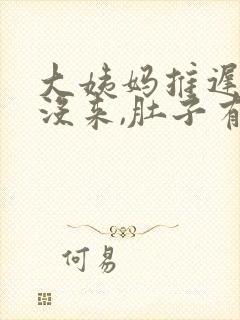 大姨妈推迟
没来,肚子有
何易